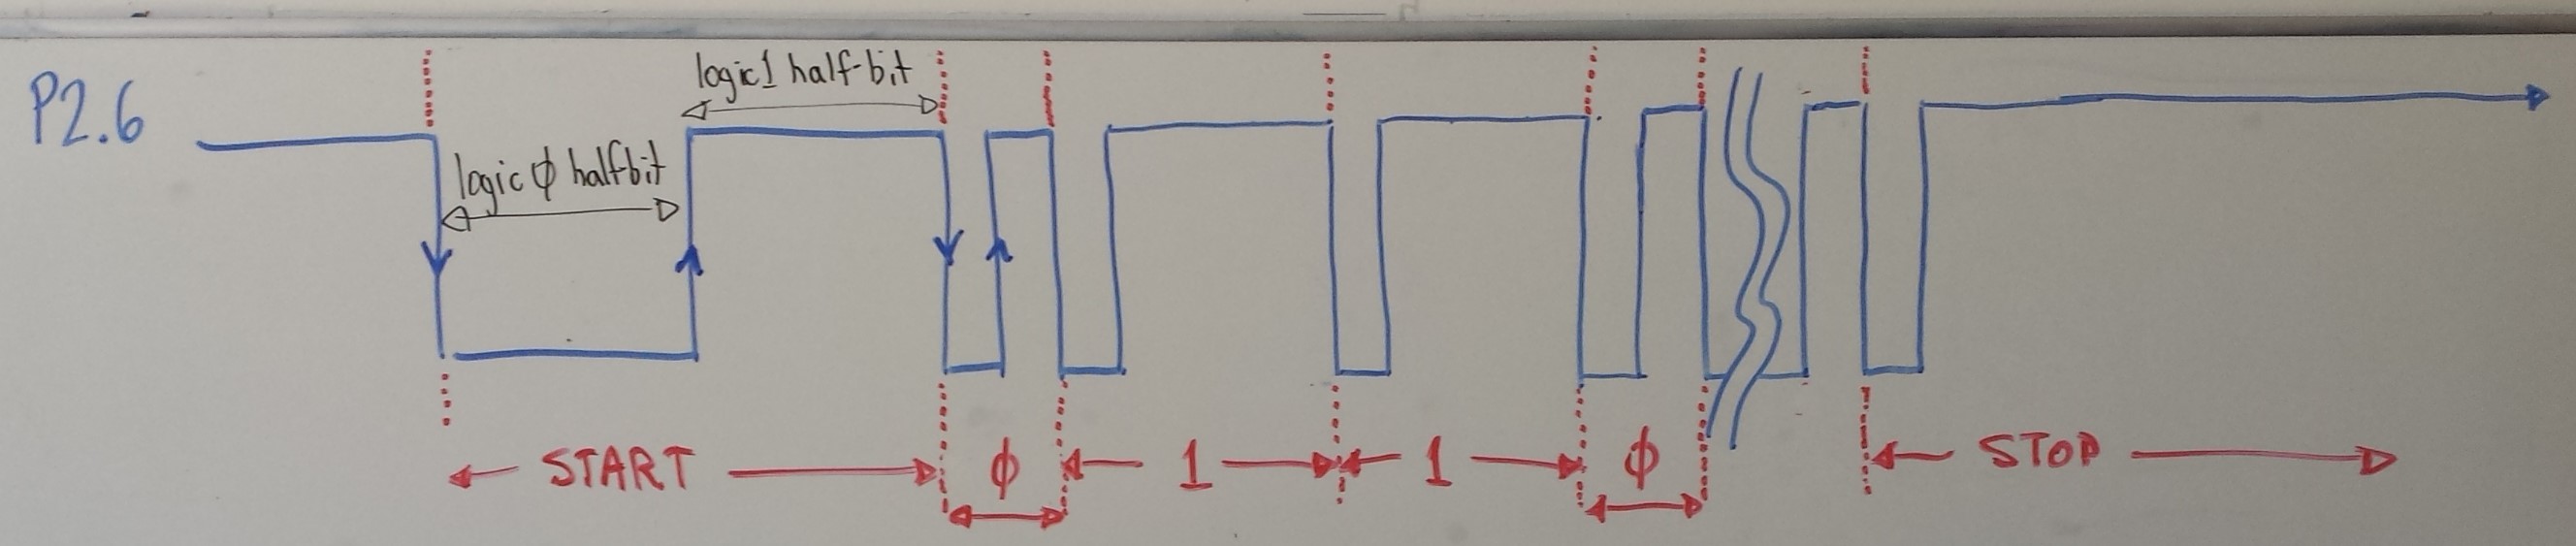 P2.6
logic1 half-bit
logic ϕ halfbit
START ϕ 1 1 ϕ STOP